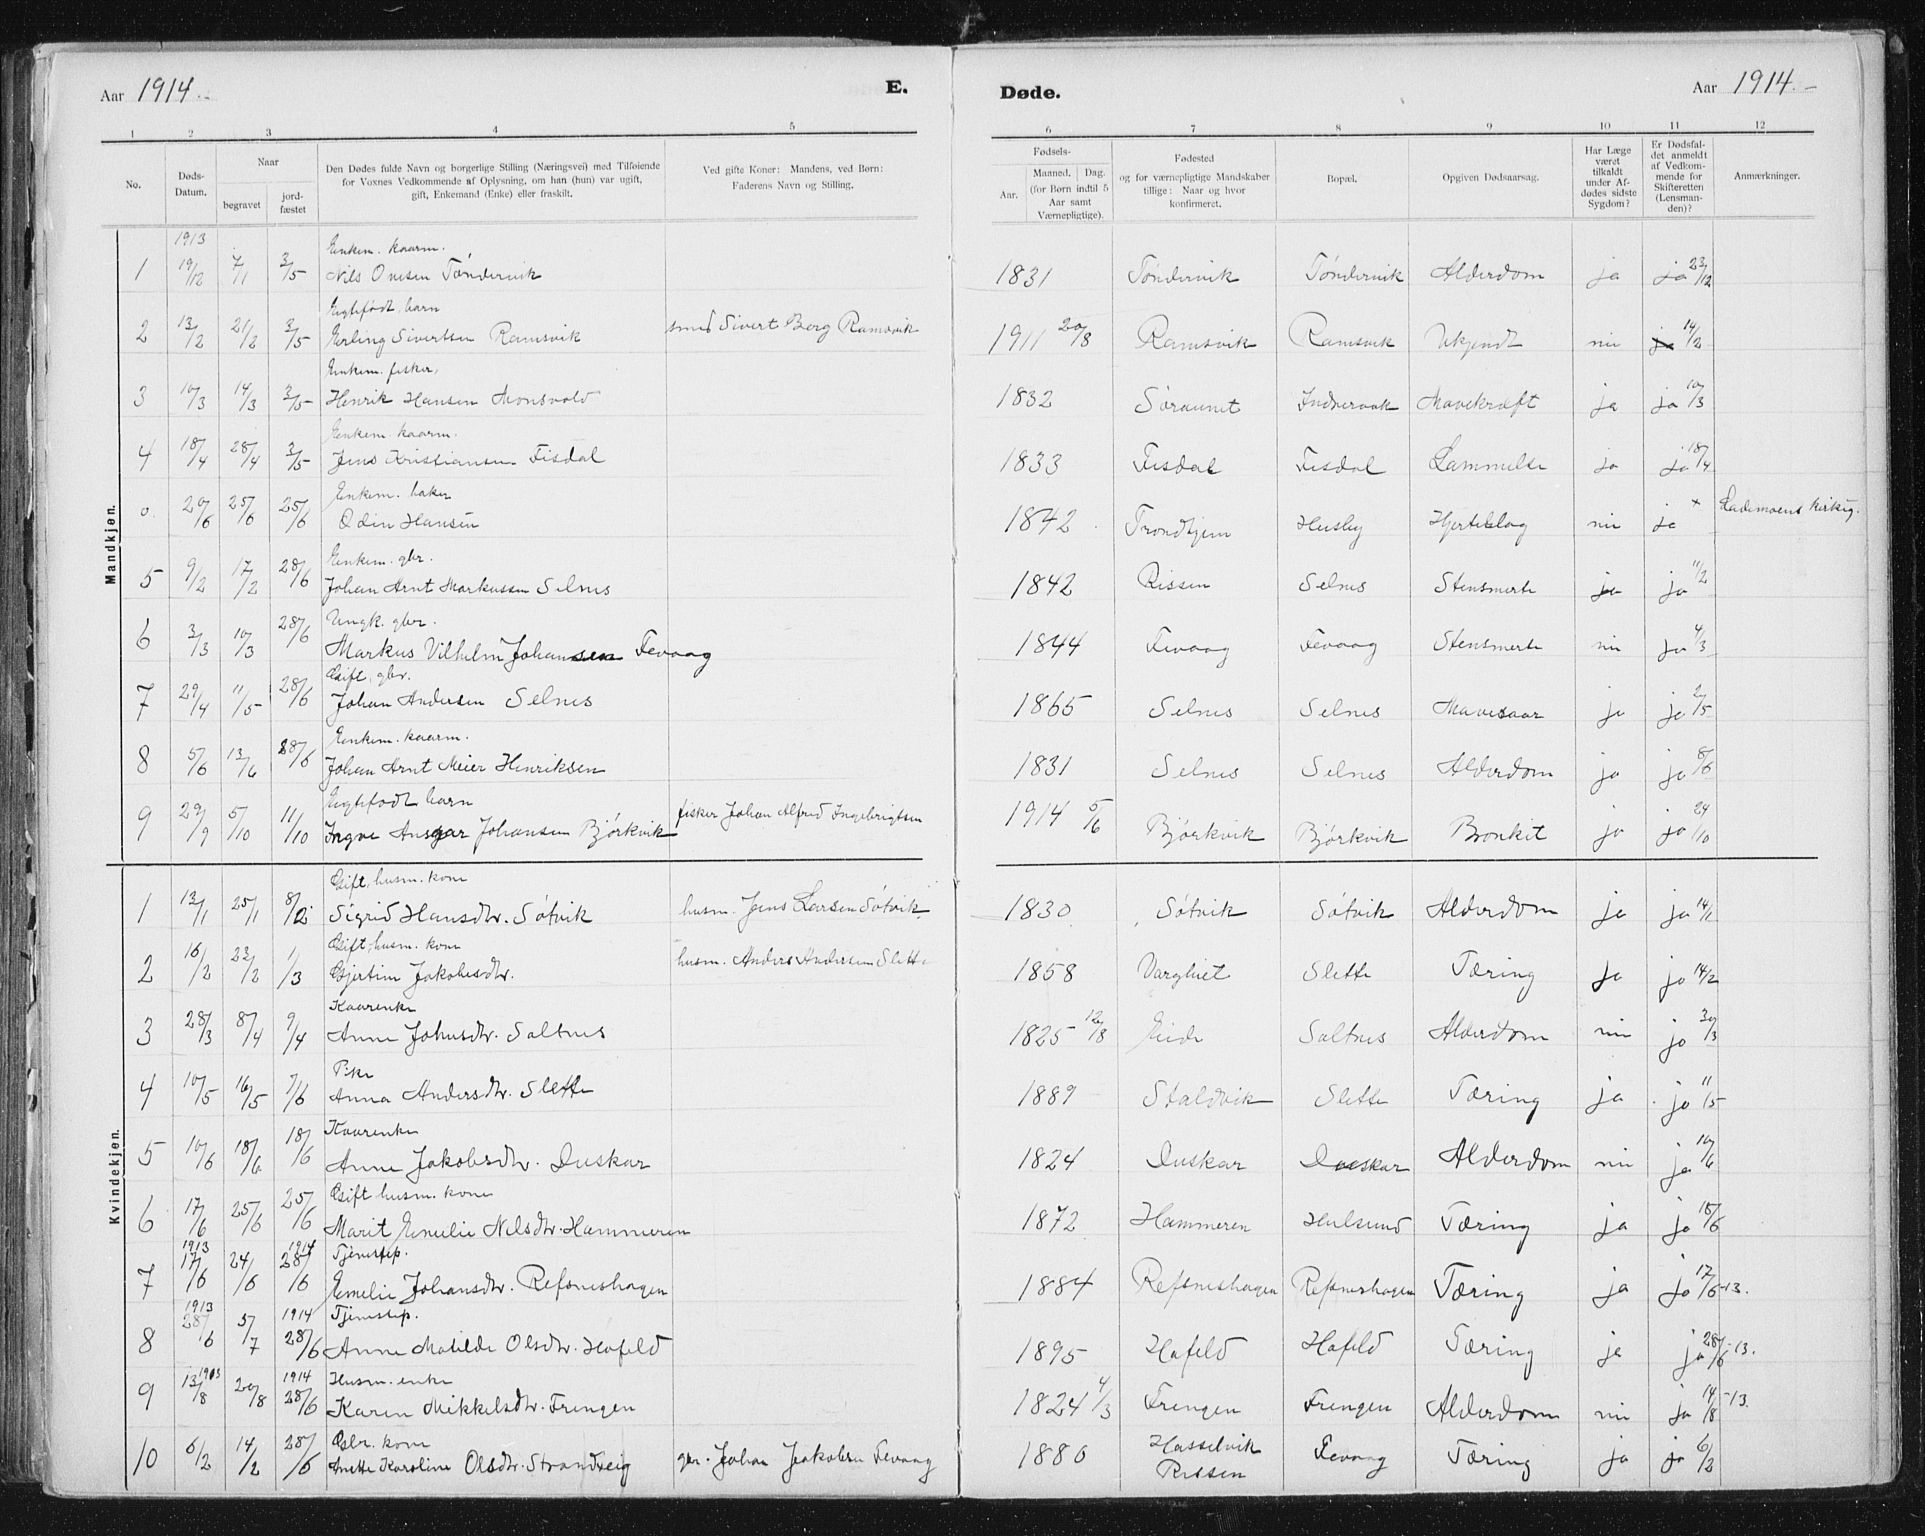 Aar 1914.
E.
Døde.
Aar 1914.
1 2 3 4 5 6 7 8 9 10 11 12
No.
Døds-Datum.
Naar
begravet
jord-fæstet
Den Dødes fulde Navn og borgerlige Stilling (Næringsvei) med Tilføiende
for Voxnes Vedkommende af Oplysning, om han (hun) var ugift,
gift, Enkemand (Enke) eller fraskilt.
Ved gifte Koner: Mandens, ved Børn:
Faderens Navn og Stilling.
Fødsels-
Aar.
Maaned. Dag.
(for Børn indtil 5
Aar samt
Værnepligtige).
Fødested
og for værnepligtige Mandskaber
tillige: Naar og hvor
konfirmeret.
Bopæl.
Opgiven Dødsaarsag.
Har Læge
været
tilkaldt
under Af-
dødes sidste
Sygdom?
Er Dødsfal-
det anmeldt
af Vedkom-
mende for
Skifteretten
(Lensman-
den)?
Anmærkninger.
Mandkjøn.
1913 Enkem. kaarm.
1 19/12 7/1 3/5 Nils Onesen Tøndervik 1831 Tøndervik Tøndervik Alderdom ja ja 23/12
Egtefødt barn
2 13/2 21/2 3/5 Erling Sivertsen Ramsvik smed Sivert Berg Ramsvik 1911 20/8 Ramsvik Ramsvik Ukjendt nei ja 14/2
Enkem. fisker.
3 10/3 14/3 3/5 Henrik Hansen Monsvold 1832 Søraunet Mavekræft ja ja 10/3
Enkem. kaarm.
4 18/4 28/4 3/5 Jens Kristiansen Fisdal 1833 Fisdal Fisdal ja ja 18/4
Enkem. baker
0. 20/6 25/6 25/6 Odin Hansen 1842 Trondhjem Husby Hjerteslag nei ja × Lademoens kirkeg.
Enkem. gbr.
5 9/2 17/2 28/6 Johan Arnt Markussen Selnes 1842 Rissen Selnes Stensmerte ja ja 11/2
Ungk. gbr.
6 3/3 10/3 28/6 Markus Vilhelm Johansen Fevaag 1844 Fevaag Fevaag Stensmerte nei ja 4/3
Gift, gbr.
7 29/4 11/5 28/6 Johan Andersen Selnes 1865 Selnes Selnes Mavesaar ja ja 2/5
Enkem. kaarm.
8 5/6 13/6 28/6 Johan Arnt Meier Henriksen 1831 Selnes Selnes Alderdom ja ja 8/6
Egtefødt barn
9 29/9 5/10 11/10 Ingve Ansgar Johansen Bjørkvik fisker Johan Alfred Ingebrigtsen 1914 5/6 Bjørkvik Bjørkvik Bronkit ja ja 24/10
Kvindekjøn.
Gift, husm. kone
1 13/1 25/1 8/2 Sigrid Hansdtr. Søtvik husm. Jens Larsen Søtvik 1830 Søtvik Søtvik Alderdom ja ja 14/1
Gift, husm. kone
2 16/2 22/2 1/3 Gjertine Jakobsdtr. husm. Anders Andersen Slette 1858 Slette Tæring ja ja 14/2
Kaarenke
3 28/3 8/4 9/4 Anne Johnsdtr. Saltnes 1825 12/8 Eide Saltnes Alderdom nei ja 30/3
Pike
4 10/5 16/5 7/6 Anna Andersdtr. Slette 1889 Staldvik Slette Tæring ja ja 11/5
Kaarenke
5 10/6 18/6 18/6 Anne Jakobsdtr. Duskar 1824 Duskar Duskar Alderdom nei ja 10/6
Gift husm. kone
6 17/6 25/6 25/6 Marit Emelie Nilsdtr. Hammeren 1872 Hammeren Tæring ja ja 18/6
1913 1914 Tjenestep.
7 17/6 24/6 28/6 Emelie Johansdtr. Refsneshagen 1884 Refsneshagen Refsneshagen Tæring ja ja 17/6 -13.
1913 1914 Tjenestep.
8 28/6 5/7 28/6 Anne Matilde Olsdtr. Hafeld 1895 Hafeld Hafeld Tæring ja ja 28/6 -13.
1913 1914 Husm. enke
9 13/8 20/8 28/6 Karen Mikkelsdtr. Frengen 1824 4/3 Frengen Frengen Alderdom nei ja 14/8 -13.
Gbr. kone
10 6/2 14/2 28/6 Anette Karoline Olsdtr. Strandveig gbr. Johan Jakobsen Fevaag 1880 Hasselvik Rissen Fevaag Tæring ja ja 6/2